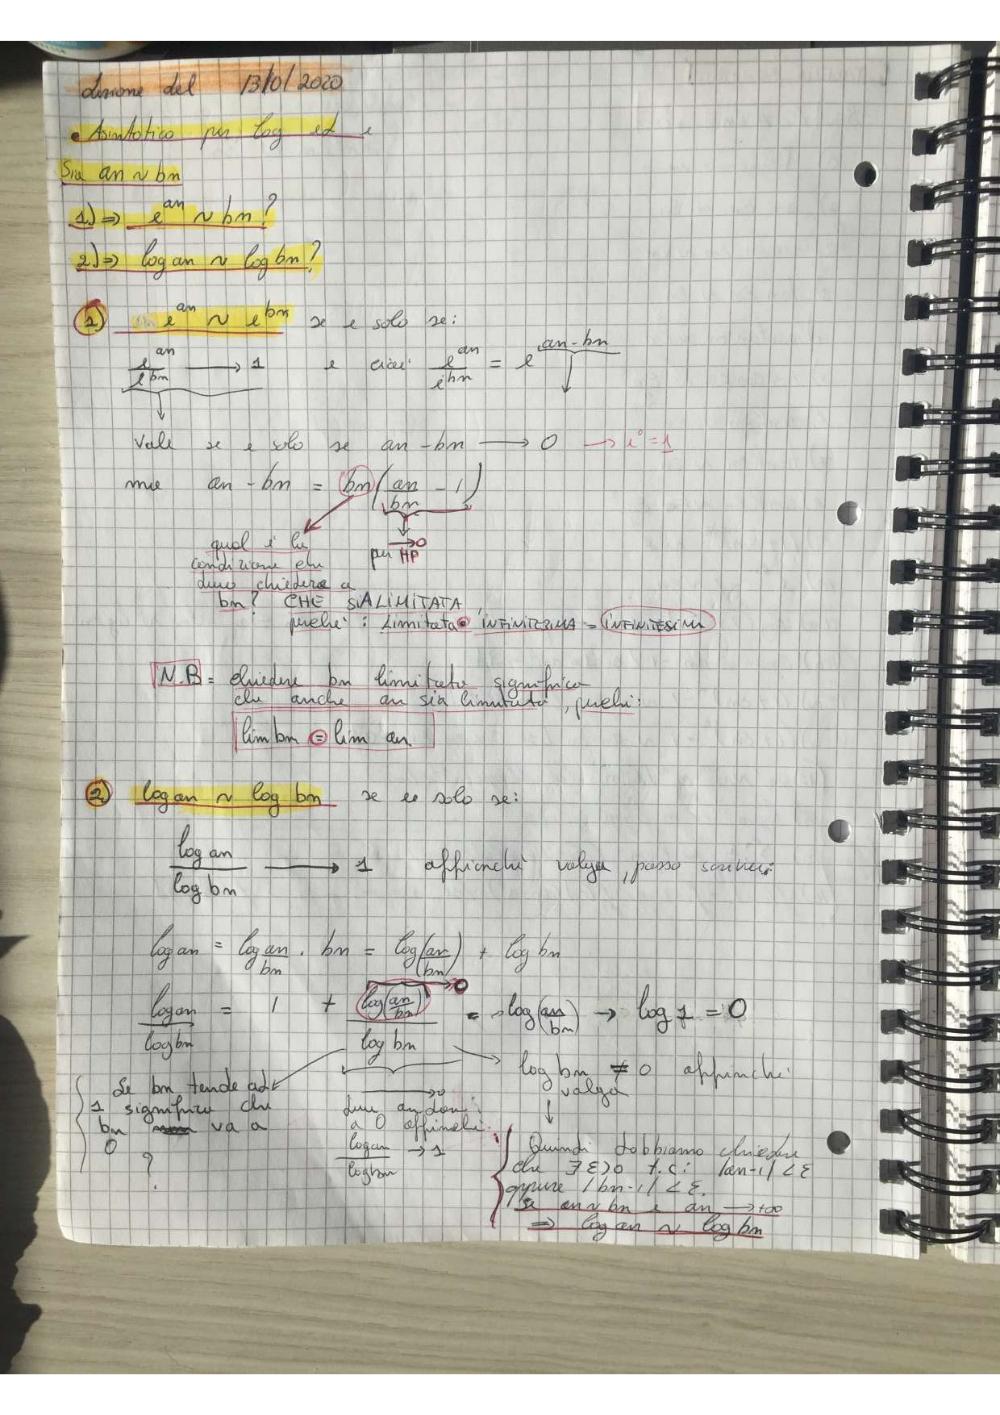 Lezione del 13/01/2020
• Asintotico per log ed e
Sia an ~ bn
1) ⇒ e^an ~ bn?
2) ⇒ log an ~ log bn?
1) e^an ~ e^bn se e solo se:
e^an / e^bn → 1 e cioè e^an / e^bn = e^(an - bn)
Vale se e solo se an - bn → 0 → e^0 = 1
ma an - bn = bn (an/bn - 1)
→ 0
per HP
qual è la
condizione che
devo chiedere a
bn? CHE SIA LIMITATA
perché: Limitata • INFINITESIMA = INFINITESIMA
N.B = chiedere bn limitata significa
che anche an sia limitata, perché:
lim bn = lim an
2) log an ~ log bn se e solo se:
log an / log bn → 1 affinché valga, posso scrivere:
log an = log an/bn · bn = log(an/bn) + log bn
log an / log bn = 1 + log(an/bn) / log bn → 0 = log(an/bn) → log 1 = 0
log bn ≠ 0 affinché
valga
Se bn tende ad
1 significa che
bn va a
0
?
→ 0
deve andare
a 0 affinché
log an / log bn → 1
Quindi dobbiamo chiedere
che ∃ ε>0 t.c: |an-1| < ε
oppure |bn-1| < ε.
se an ~ bn e an → +∞
⇒ log an ~ log bn